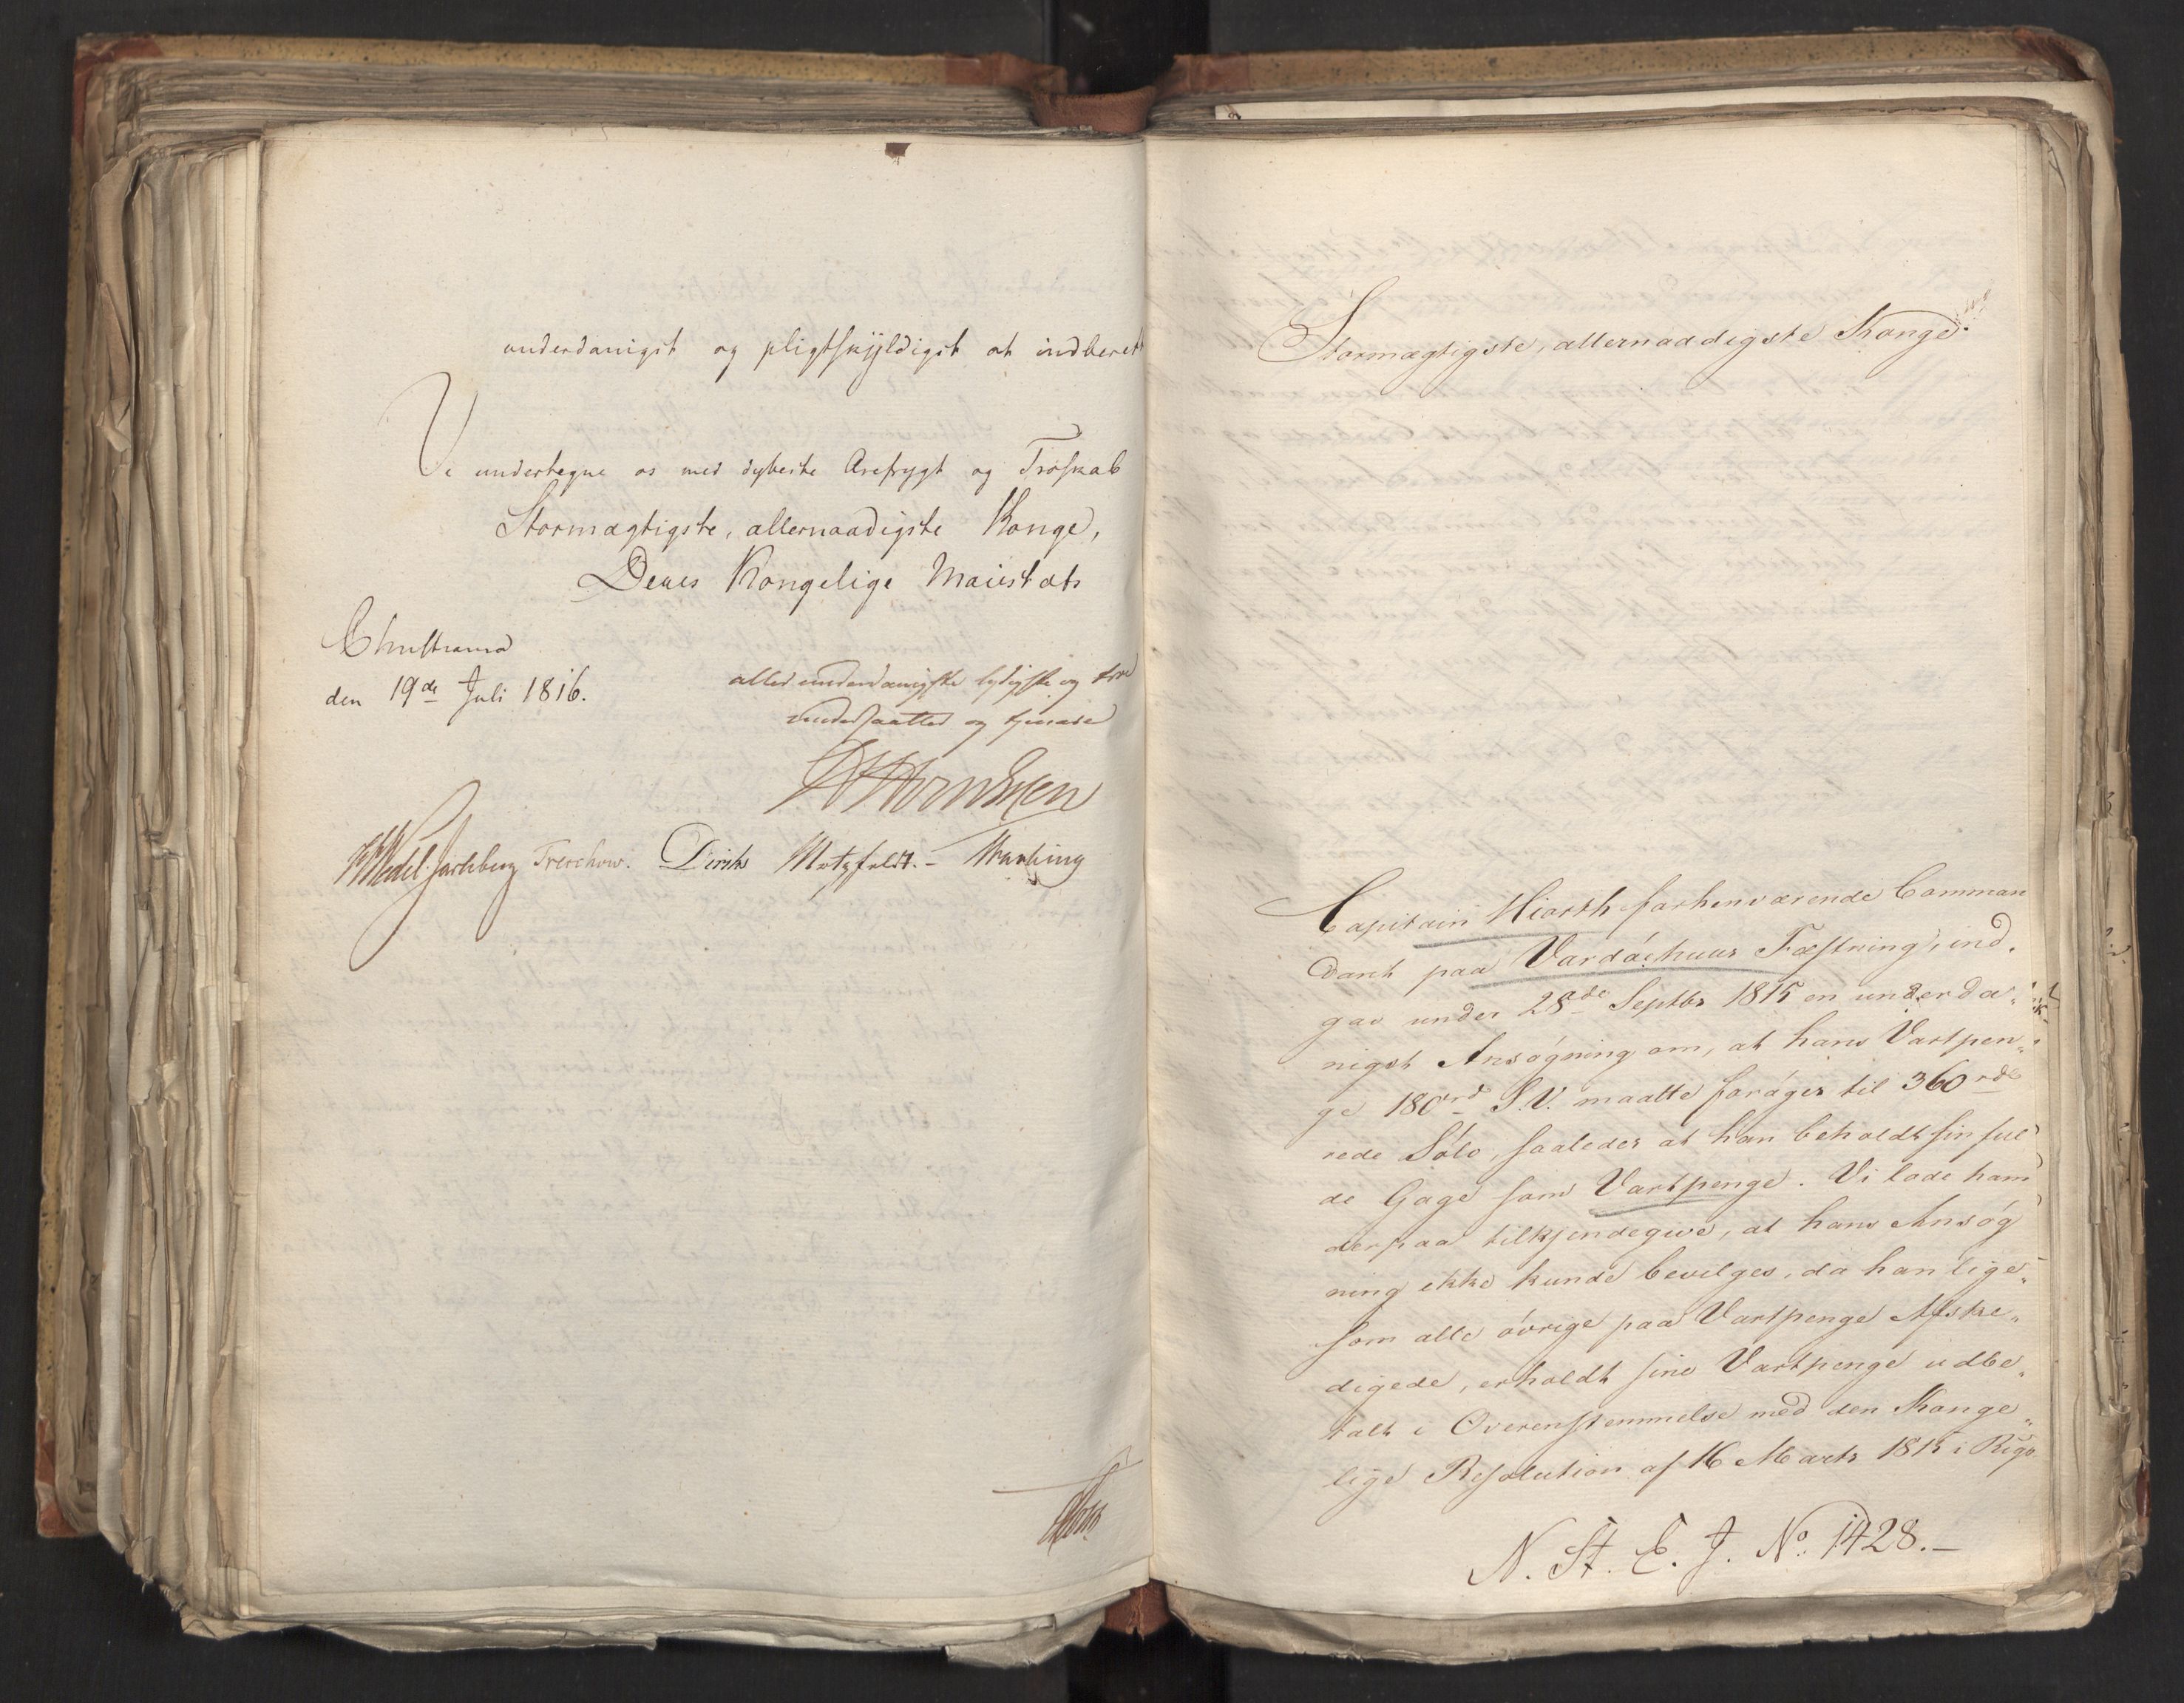 underdanigst og pligtskyldigst at indberet
Vi undertegne os med dybeste Ærefrygt og Troskab
Stormægtigste, allernaadigste Konge,
Deres Kongelige Maiestæts
Christiania
den 19de Juli 1816.
allerunderdanigste lydigste og troe
undersaatter og tjenere
Wedel Jarlsberg Treschow. Diriks Motzfeldt.-
Stormægtigste, allernaadigste Konge!
Capitain Hiorth forhenværende Comman
dant paa Vardöehuus Fæstning, ind-
gav under 28de Septbr 1815 en underda„
nigst Ansögning om, at hans Vartpen„
ge 180rd S.V. maatte foröges til 360rdr
rede Sölv, saaledes at han beholdt sin ful
de Gage som Vartpenge. Vi lode ham
derpaa tilkjendegive, at hans Ansög
ning ikke kunde bevilges, da han lige„
som alle övrige paa Vartpenge Afske„
digede, erholdt sine Vartpenge udbe„
talt i Overenstemmelse med den Konge„
lige Resolution af 16 Marts 1815 i Rigs
N. St. E. J. No. 1428.-